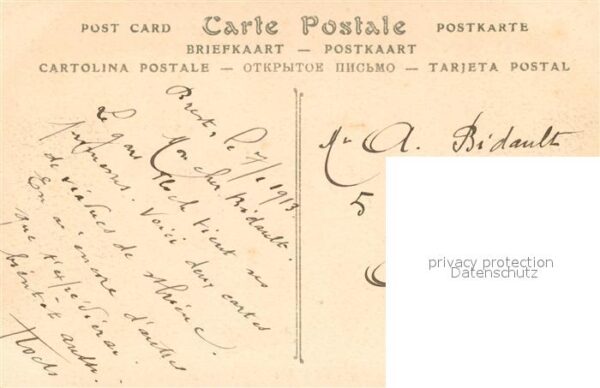 POST CARD Carte Postale POSTKARTE
BRIEFKAART — POSTKAART
CARTOLINA POSTALE — ОТКРЫТОЕ ПИСЬМО — TARJETA POSTAL
Brest, le 7/1 1913.
Mon cher Bidault.
Le gars Floch tient ses
promesses. Voici deux cartes
de viaducs de
En a encore d'autres
que t'expédierai
bientôt
Floch
Mr A. Bidault
5
privacy protection
Datenschutz